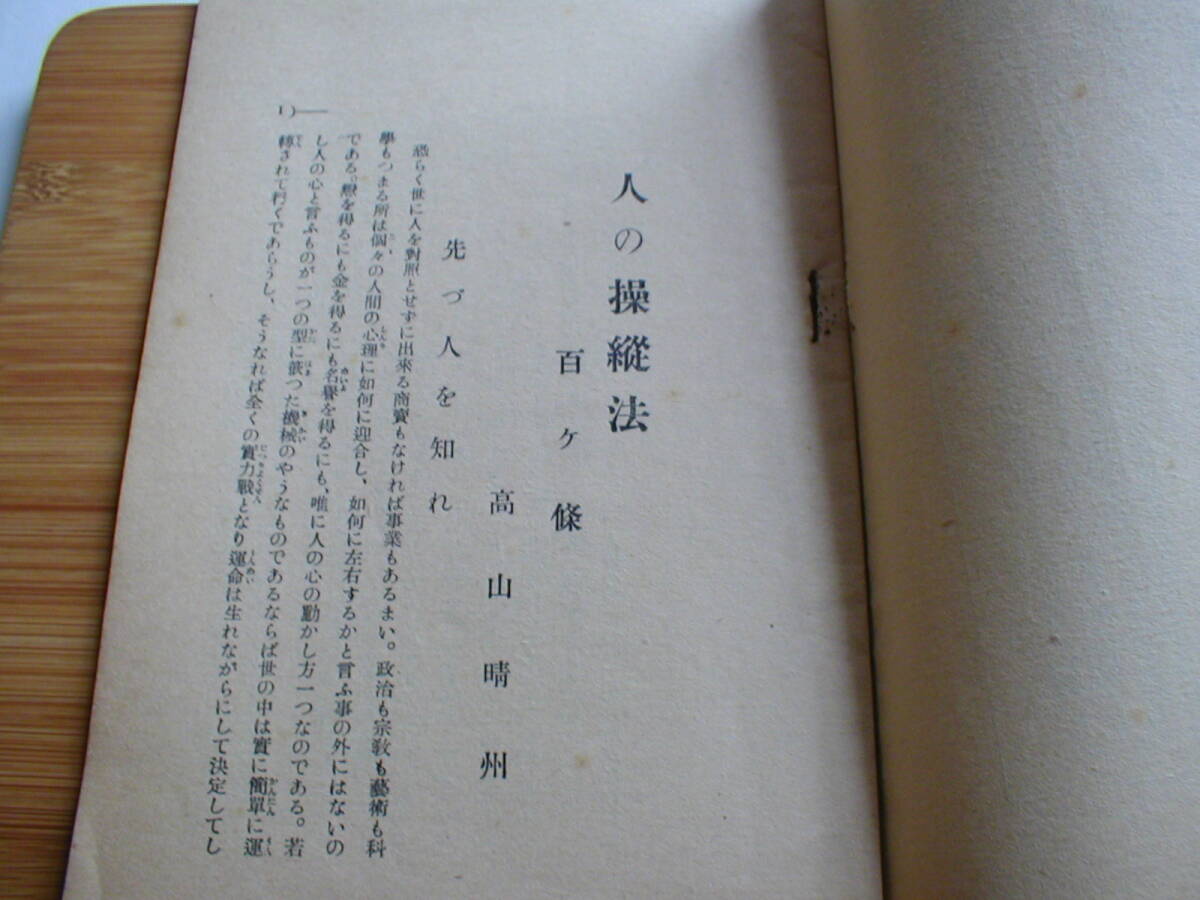 人の操縱法
百ヶ條
高山晴州
先づ人を知れ
恐らく世に人を對照とせずに出來る商賣もなければ事業もあるまい。政治も宗敎も藝術も科
學もつまる所は個々の人間の心理に如何に迎合し、如何に左右するかと言ふ事の外にはないの
である。戀を得るにも金を得るにも名譽を得るにも、唯に人の心の動かし方一つなのである。若
し人の心と言ふものが一つの型に嵌つた機械のやうなものであるならば世の中は實に簡單に運
轉されて行くであらうし、そうなれば全くの實力戰となり運命は生れながらにして決定してし